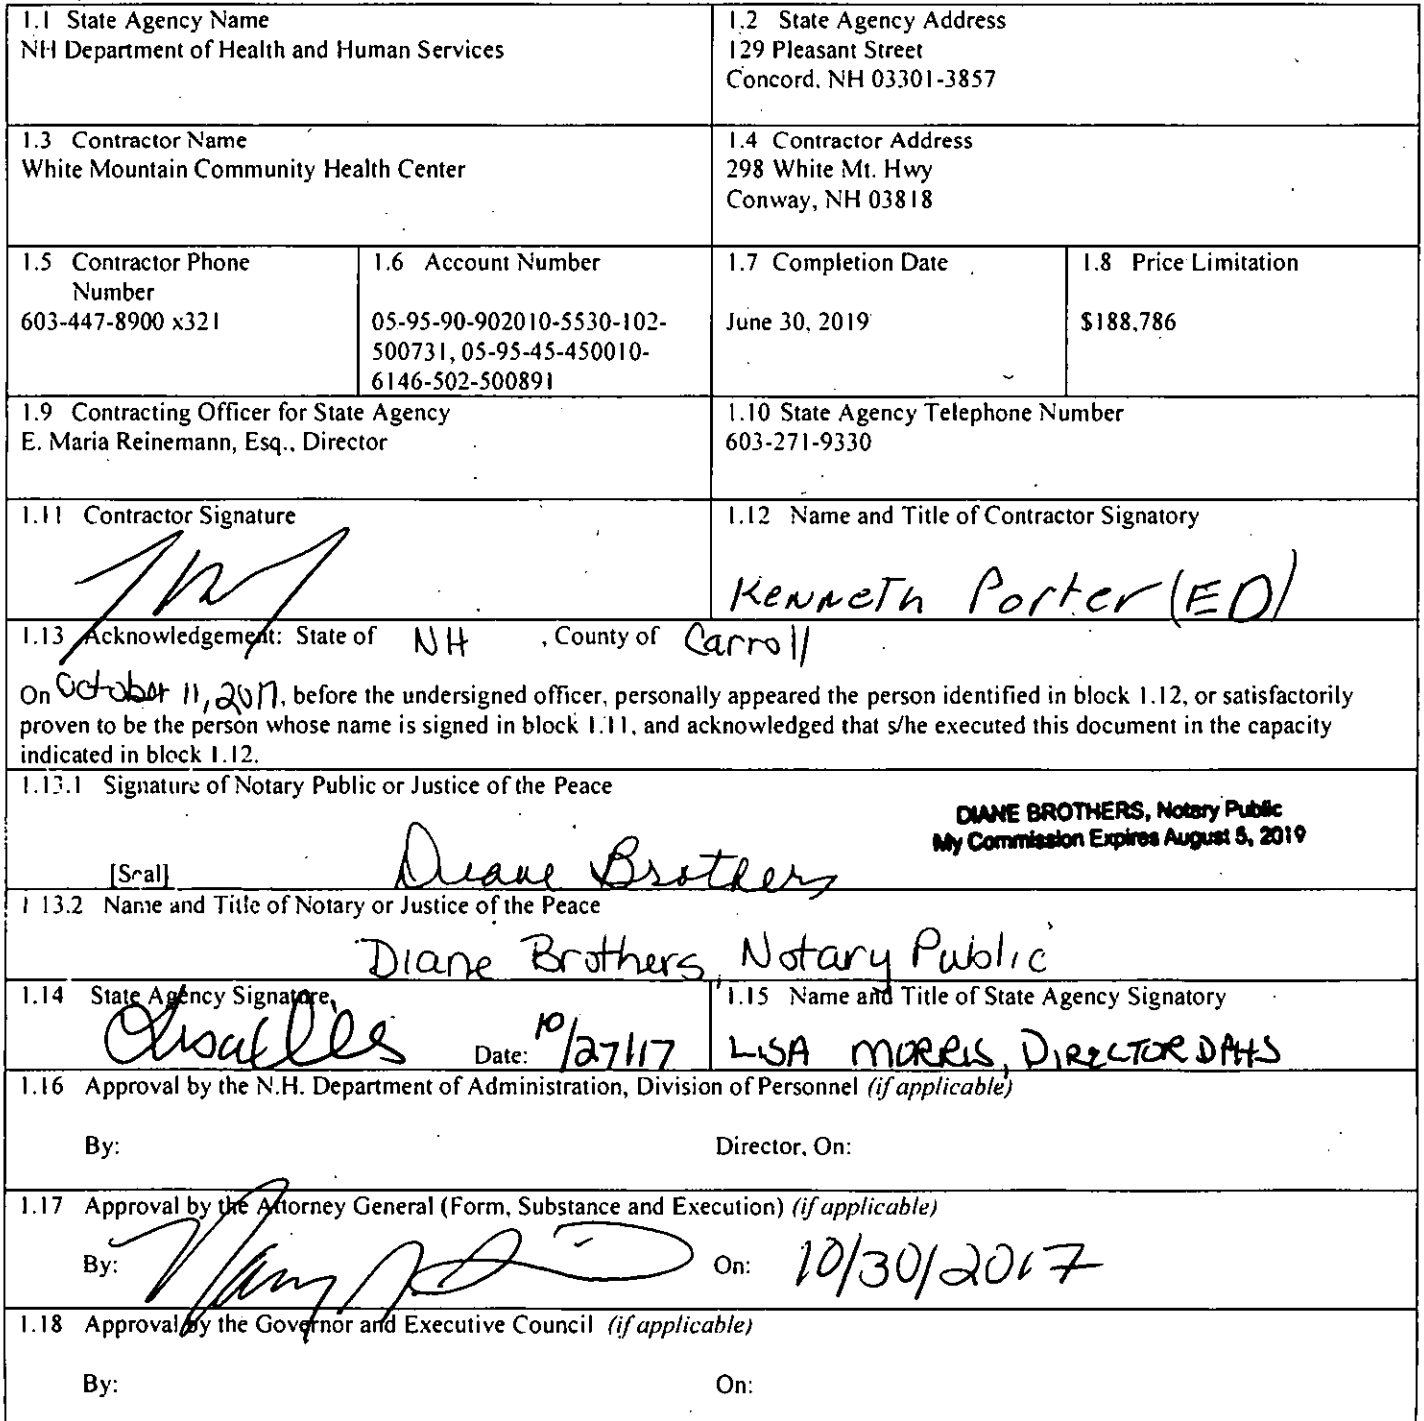 1.1 State Agency Name
NH Department of Health and Human Services
1.2 State Agency Address
129 Pleasant Street
Concord, NH 03301-3857
1.3 Contractor Name
White Mountain Community Health Center
1.4 Contractor Address
298 White Mt. Hwy
Conway, NH 03818
1.5 Contractor Phone
Number
603-447-8900 x321
1.6 Account Number
05-95-90-902010-5530-102-
500731, 05-95-45-450010-
6146-502-500891
1.7 Completion Date
June 30, 2019
1.8 Price Limitation
$188,786
1.9 Contracting Officer for State Agency
E. Maria Reinemann, Esq., Director
1.10 State Agency Telephone Number
603-271-9330
1.11 Contractor Signature
1.12 Name and Title of Contractor Signatory
Kenneth Porter (ED)
1.13 Acknowledgement: State of NH , County of Carroll
On October 11, 2017, before the undersigned officer, personally appeared the person identified in block 1.12, or satisfactorily
proven to be the person whose name is signed in block 1.11, and acknowledged that s/he executed this document in the capacity
indicated in block 1.12.
1.13.1 Signature of Notary Public or Justice of the Peace
DIANE BROTHERS, Notary Public
My Commission Expires August 5, 2019
[Seal] Diane Brothers
1.13.2 Name and Title of Notary or Justice of the Peace
Diane Brothers, Notary Public
1.14 State Agency Signature
Date: 10/27/17
1.15 Name and Title of State Agency Signatory
LISA MORRIS, DIRECTOR DPHS
1.16 Approval by the N.H. Department of Administration, Division of Personnel (if applicable)
By: Director, On:
1.17 Approval by the Attorney General (Form, Substance and Execution) (if applicable)
By: On: 10/30/2017
1.18 Approval by the Governor and Executive Council (if applicable)
By: On: